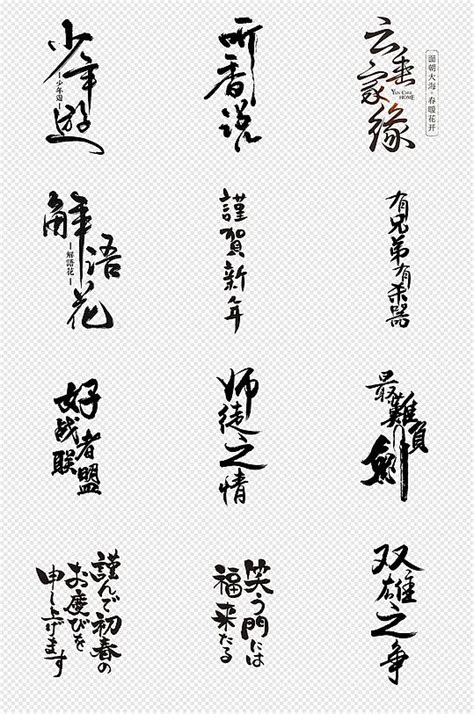 少年遊
少年遊
听香说
云垂家缘
面朝大海·春暖花开
解语花
解語花
謹賀新年
有兄弟有杀器
好战者
联盟
师徒之情
最難負
劍
謹んで初春の
お慶びを
申し上げます
笑う門には
福来たる
双雄之争